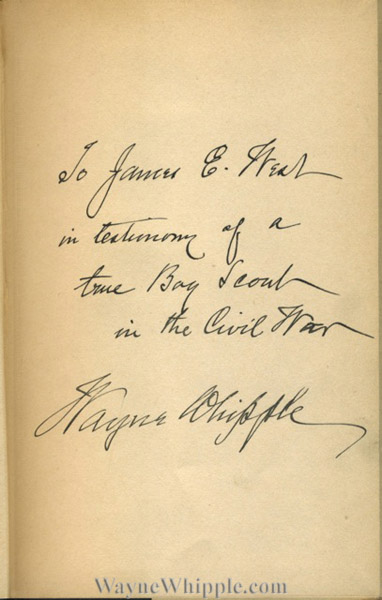 To James E. West
in testimony of a
true Boy Scout
in the Civil War
Wayne Whipple
WayneWhipple.com